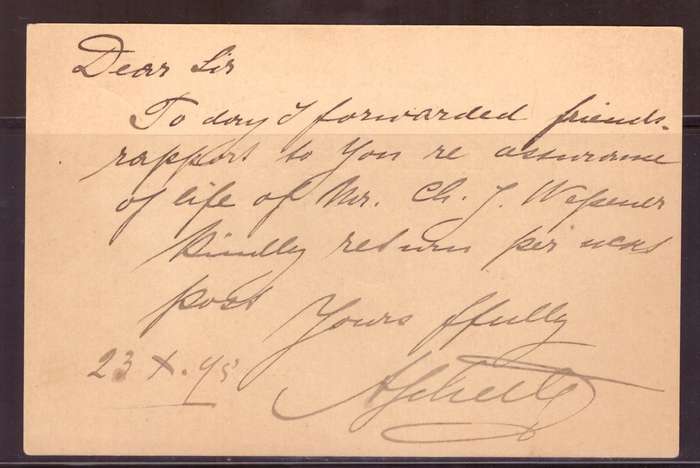 Dear Sir
To day I forwarded friends-
rapport to You re assurance
of life of Mr. Ch. J. Wessener
Kindly return per next
post
Yours ffully
23 X. 95